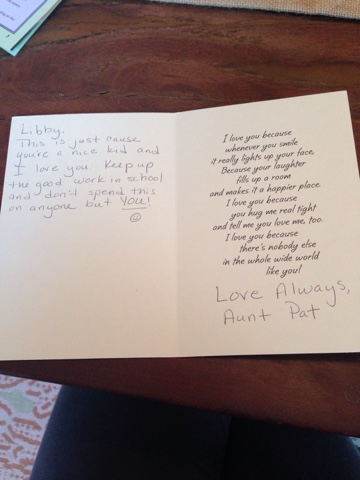 Libby.
This is just cause
you're a nice kid and
I love you. Keep up
the good work in school
and don't spend this
on anyone but YOU!
I love you because
whenever you smile
it really lights up your face,
Because your laughter
fills up a room
and makes it a happier place.
I love you because
you hug me real tight
and tell me you love me, too.
I love you because
there's nobody else
in the whole wide world
like you!
Love Always,
Aunt Pat